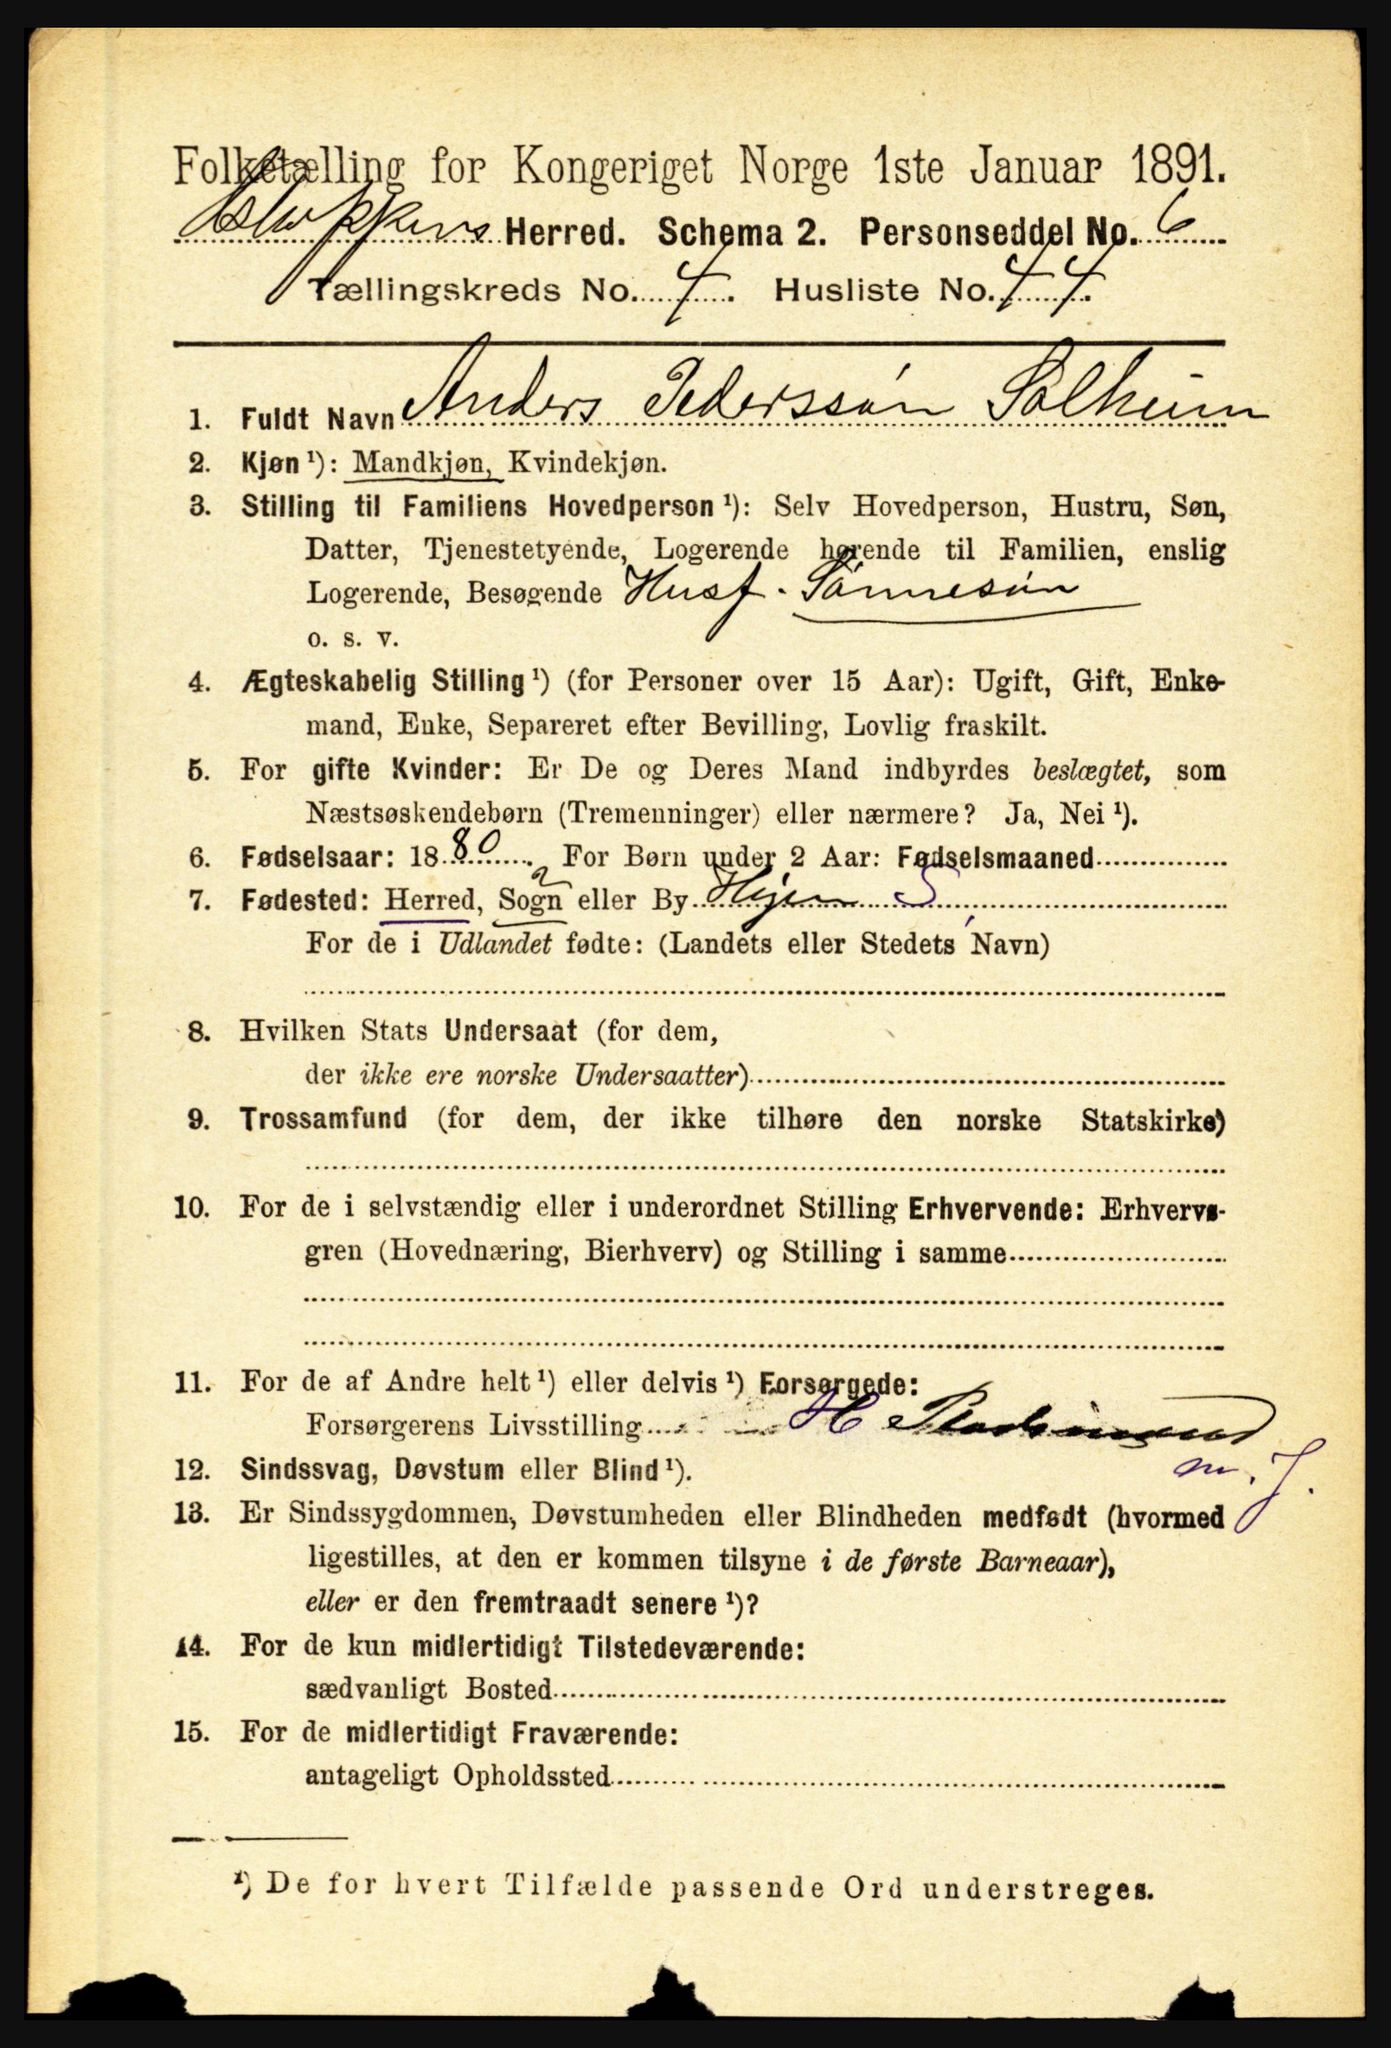 Folketælling for Kongeriget Norge 1ste Januar 1891.
Herred. Schema 2. Personseddel No. 6
Tællingskreds No. 4. Husliste No. 44.
1. Fuldt Navn Anders Pedersson Solheim
2. Kjøn ¹): Mandkjøn, Kvindekjøn.
3. Stilling til Familiens Hovedperson ¹): Selv Hovedperson, Hustru, Søn,
Datter, Tjenestetyende, Logerende hørende til Familien, enslig
Logerende, Besøgende Husf. Sønnesøn
o. s. v.
4. Ægteskabelig Stilling ¹) (for Personer over 15 Aar): Ugift, Gift, Enke-
mand, Enke, Separeret efter Bevilling, Lovlig fraskilt.
5. For gifte Kvinder: Er De og Deres Mand indbyrdes beslægtet, som
Næstsøskendebørn (Tremenninger) eller nærmere? Ja, Nei ¹).
6. Fødselsaar: 1880. For Børn under 2 Aar: Fødselsmaaned
7. Fødested: Herred, Sogn eller By Hyen S
For de i Udlandet fødte: (Landets eller Stedets Navn)
8. Hvilken Stats Undersaat (for dem,
der ikke ere norske Undersaatter)
9. Trossamfund (for dem, der ikke tilhøre den norske Statskirke)
10. For de i selvstændig eller i underordnet Stilling Erhvervende: Erhvervs-
gren (Hovednæring, Bierhverv) og Stilling i samme
11. For de af Andre helt ¹) eller delvis ¹) Forsørgede:
Forsørgerens Livsstilling H
m. J.
12. Sindssvag, Døvstum eller Blind ¹).
13. Er Sindssygdommen, Døvstumheden eller Blindheden medfødt (hvormed
ligestilles, at den er kommen tilsyne i de første Barneaar),
eller er den fremtraadt senere ¹)?
14. For de kun midlertidigt Tilstedeværende:
sædvanligt Bosted
15. For de midlertidigt Fraværende:
antageligt Opholdssted
¹) De for hvert Tilfælde passende Ord understreges.